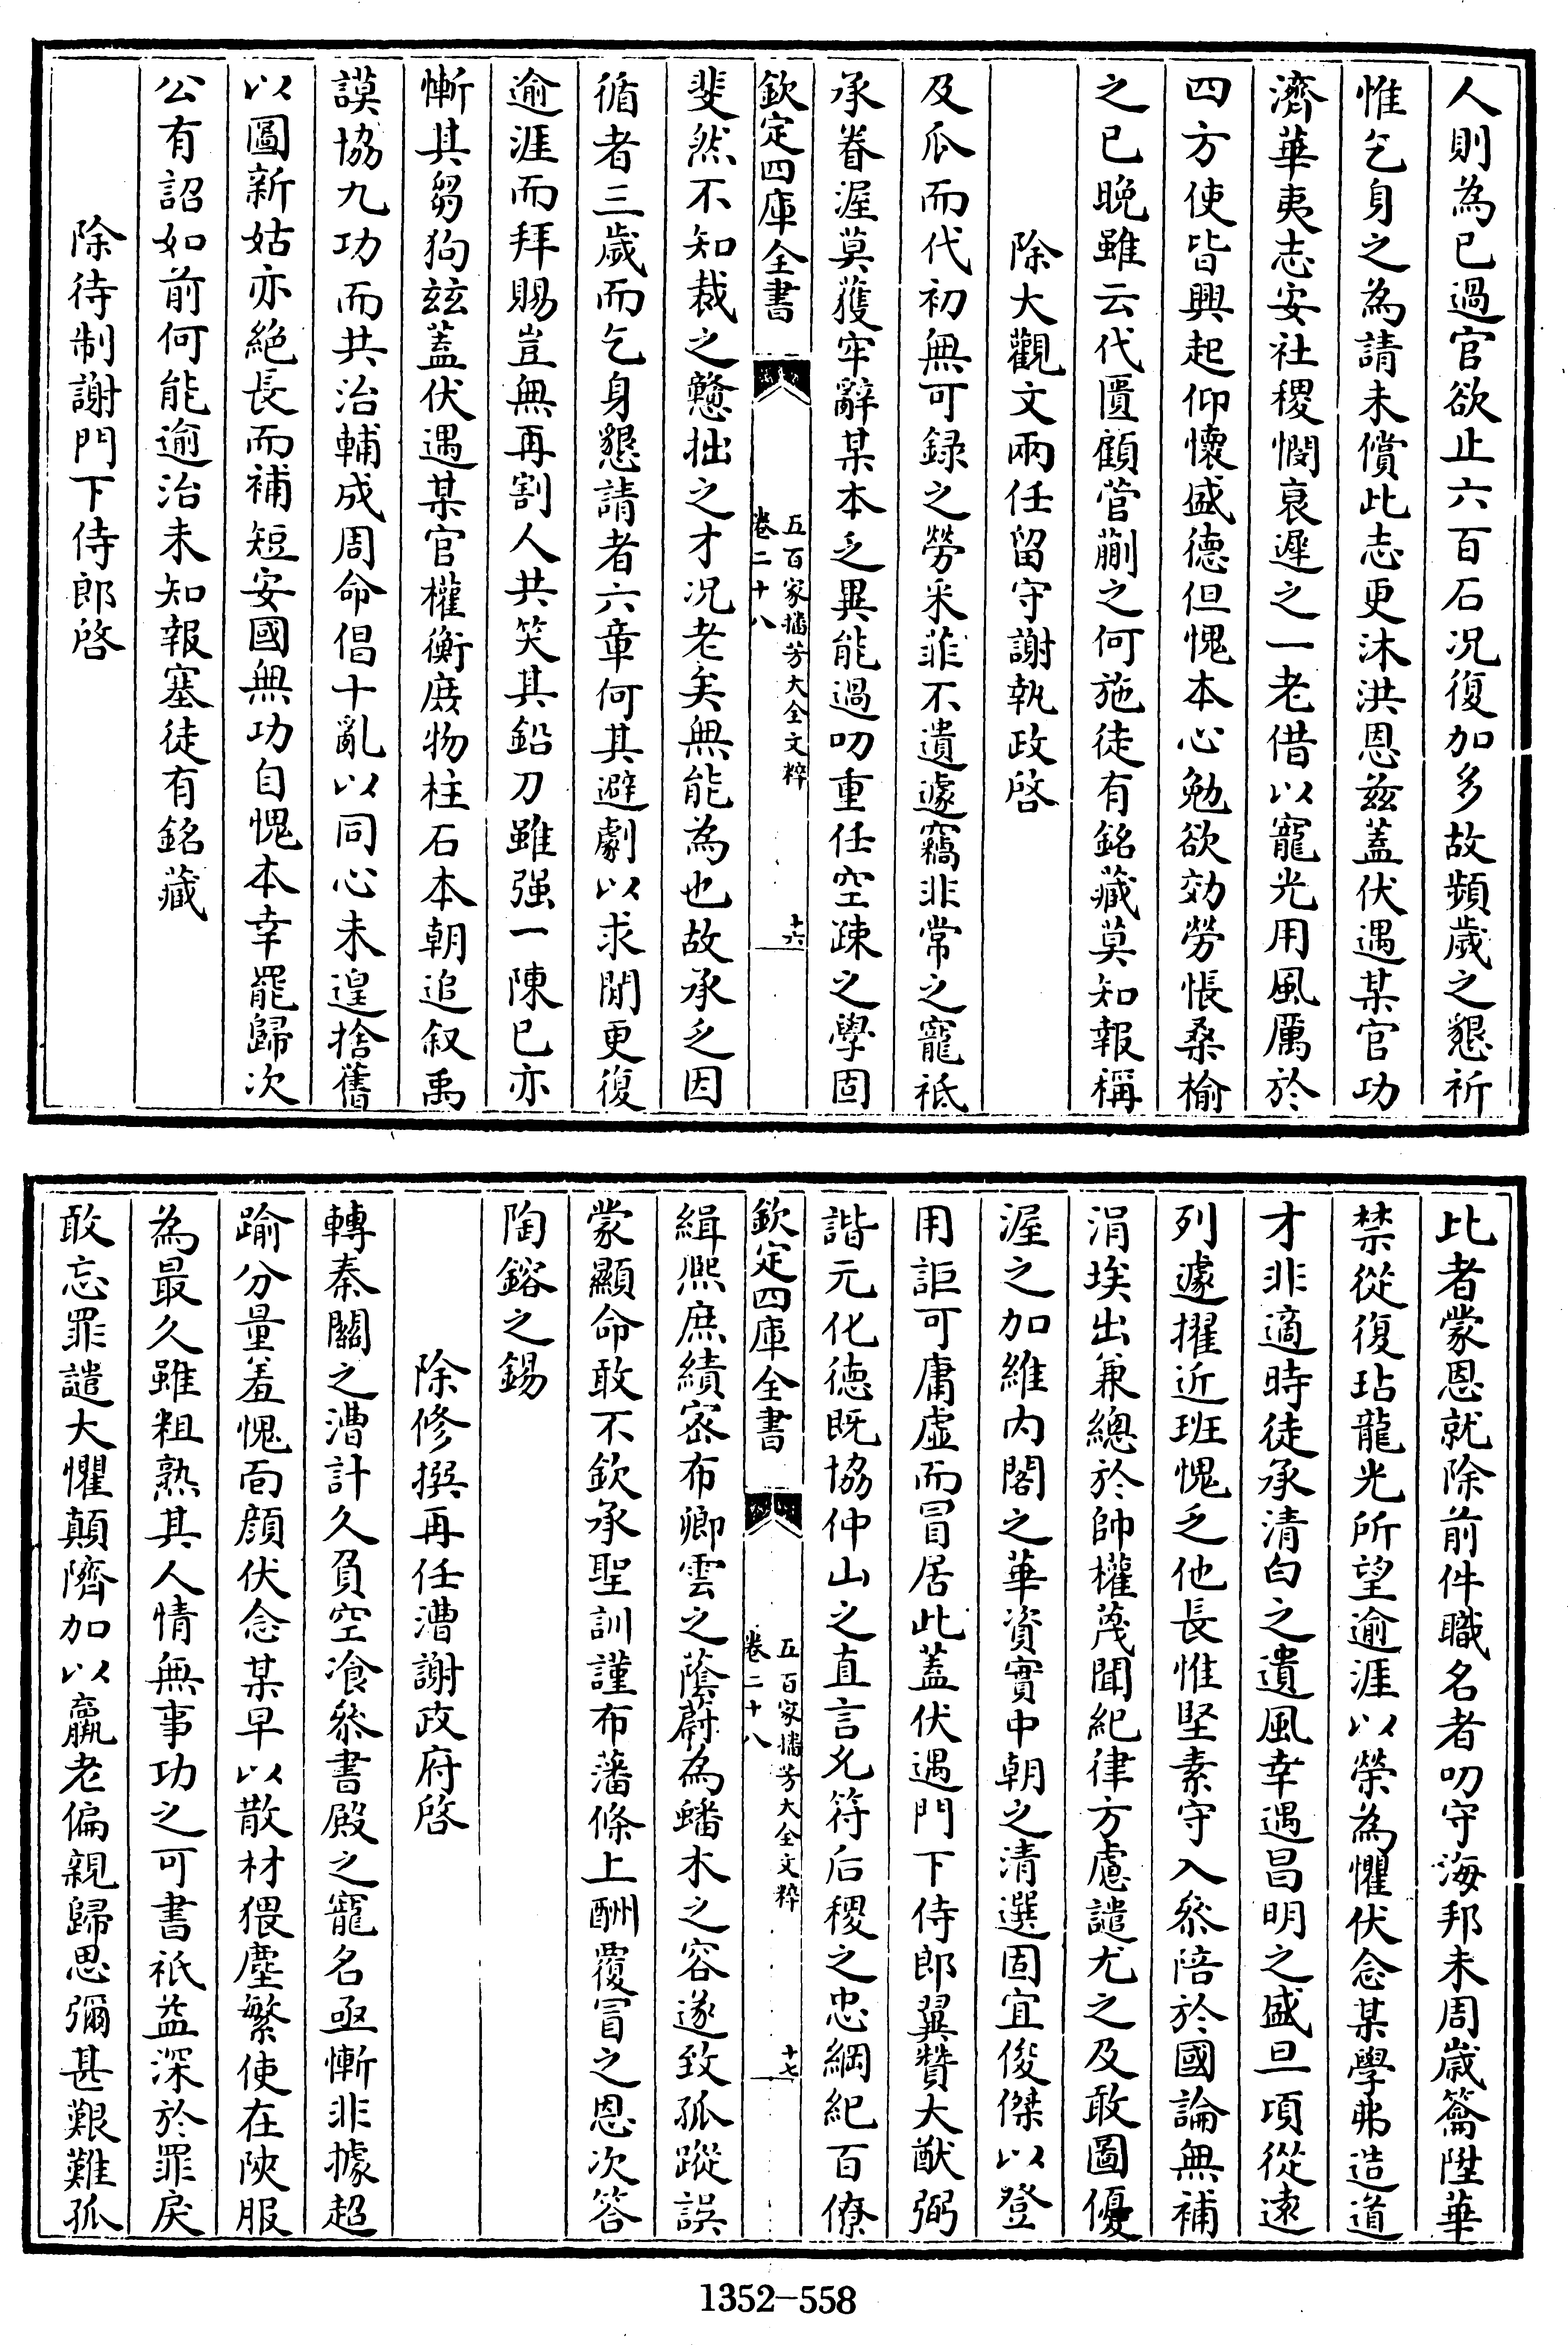 人則為已過官欲止六百石况復加多故頻歲之懇祈
惟乞身之為請未償此志更沐洪恩兹蓋伏遇某官功
濟華夷志安社稷憫哀遲之一老借以寵光用風厲於
四方使皆興起仰懷盛德但愧本心勉欲効勞悵桑榆
之已晚雖云代匱顧菅蒯之何施徒有銘藏莫知報稱
除大觀文兩任留守謝執政啓
及瓜而代初無可録之勞采菲不遺遽竊非常之寵祗
承眷渥莫獲牢辭某本乏異能過叨重任空疎之學固
欽定四庫全書
五百家播芳大全文粹
卷二十八
十六
斐然不知裁之戇拙之才况老矣無能為也故承乏因
循者三歲而乞身懇請者六章何其避劇以求閒更復
逾涯而拜賜豈無再割人共笑其鉛刀雖强一陳已亦
慚其芻狗兹蓋伏遇某官權衡庶物柱石本朝追叙禹
謨協九功而共治輔成周命倡十亂以同心未遑捨舊
以圖新姑亦絶長而補短安國無功自愧本幸罷歸次
公有詔如前何能逾治未知報塞徒有銘藏
除待制謝門下侍郎啓
比者蒙恩就除前件職名者叨守海邦未周歲籥陞華
禁從復玷龍光所望逾涯以榮為懼伏念某學弗造道
才非適時徒承清白之遺風幸遇昌明之盛旦項從遠
列遽擢近班愧乏他長惟堅素守入叅陪於國論無補
涓埃出兼總於帥權蔑聞紀律方慮譴尤之及敢圖優
渥之加維内閣之華資實中朝之清選固宜俊傑以登
用詎可庸虛而冒居此蓋伏遇門下侍郎翼贊大猷弼
諧元化德既協仲山之直言允符后稷之忠綱紀百僚
欽定四庫全書
五百家播芳大全文粹
卷二十八
十七
緝熙庶績密布卿雲之蔭蔚為蟠木之容遂致孤蹤誤
蒙顯命敢不欽承聖訓謹布藩條上酬覆冒之恩次答
陶鎔之錫
除修撰再任漕謝政府啓
轉秦關之漕計久負空飡叅書殿之寵名亟慚非據超
踰分量羞愧面顔伏念某早以散材猥塵繁使在陝服
為最久雖粗熟其人情無事功之可書祇益深於罪戾
敢忘罪譴大懼顛隮加以羸老偏親歸思彌甚艱難孤
1352-558